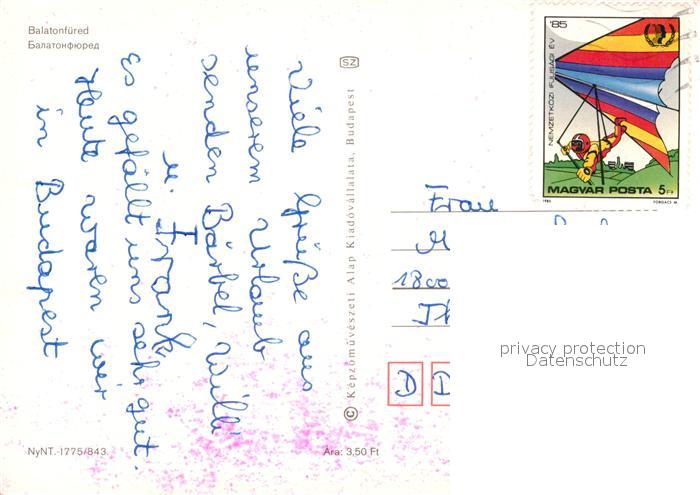 Balatonfüred
Балатонфюред
Viele Grüße aus
unserem Urlaub
senden Bärbel, Willi
u. Frank
Es gefällt uns sehr gut.
Heute waren wir
in Budapest
NyNT.-1775/843.
Ára: 3,50 Ft
SZ
© Képzőművészeti Alap Kiadóvállalata, Budapest
'85
NEMZETKÖZI IFJUSÁGI ÉV
MAGYAR POSTA 5Ft
1985 FORGÁCS M.
Frau
M
1800
Th
D D
privacy protection
Datenschutz